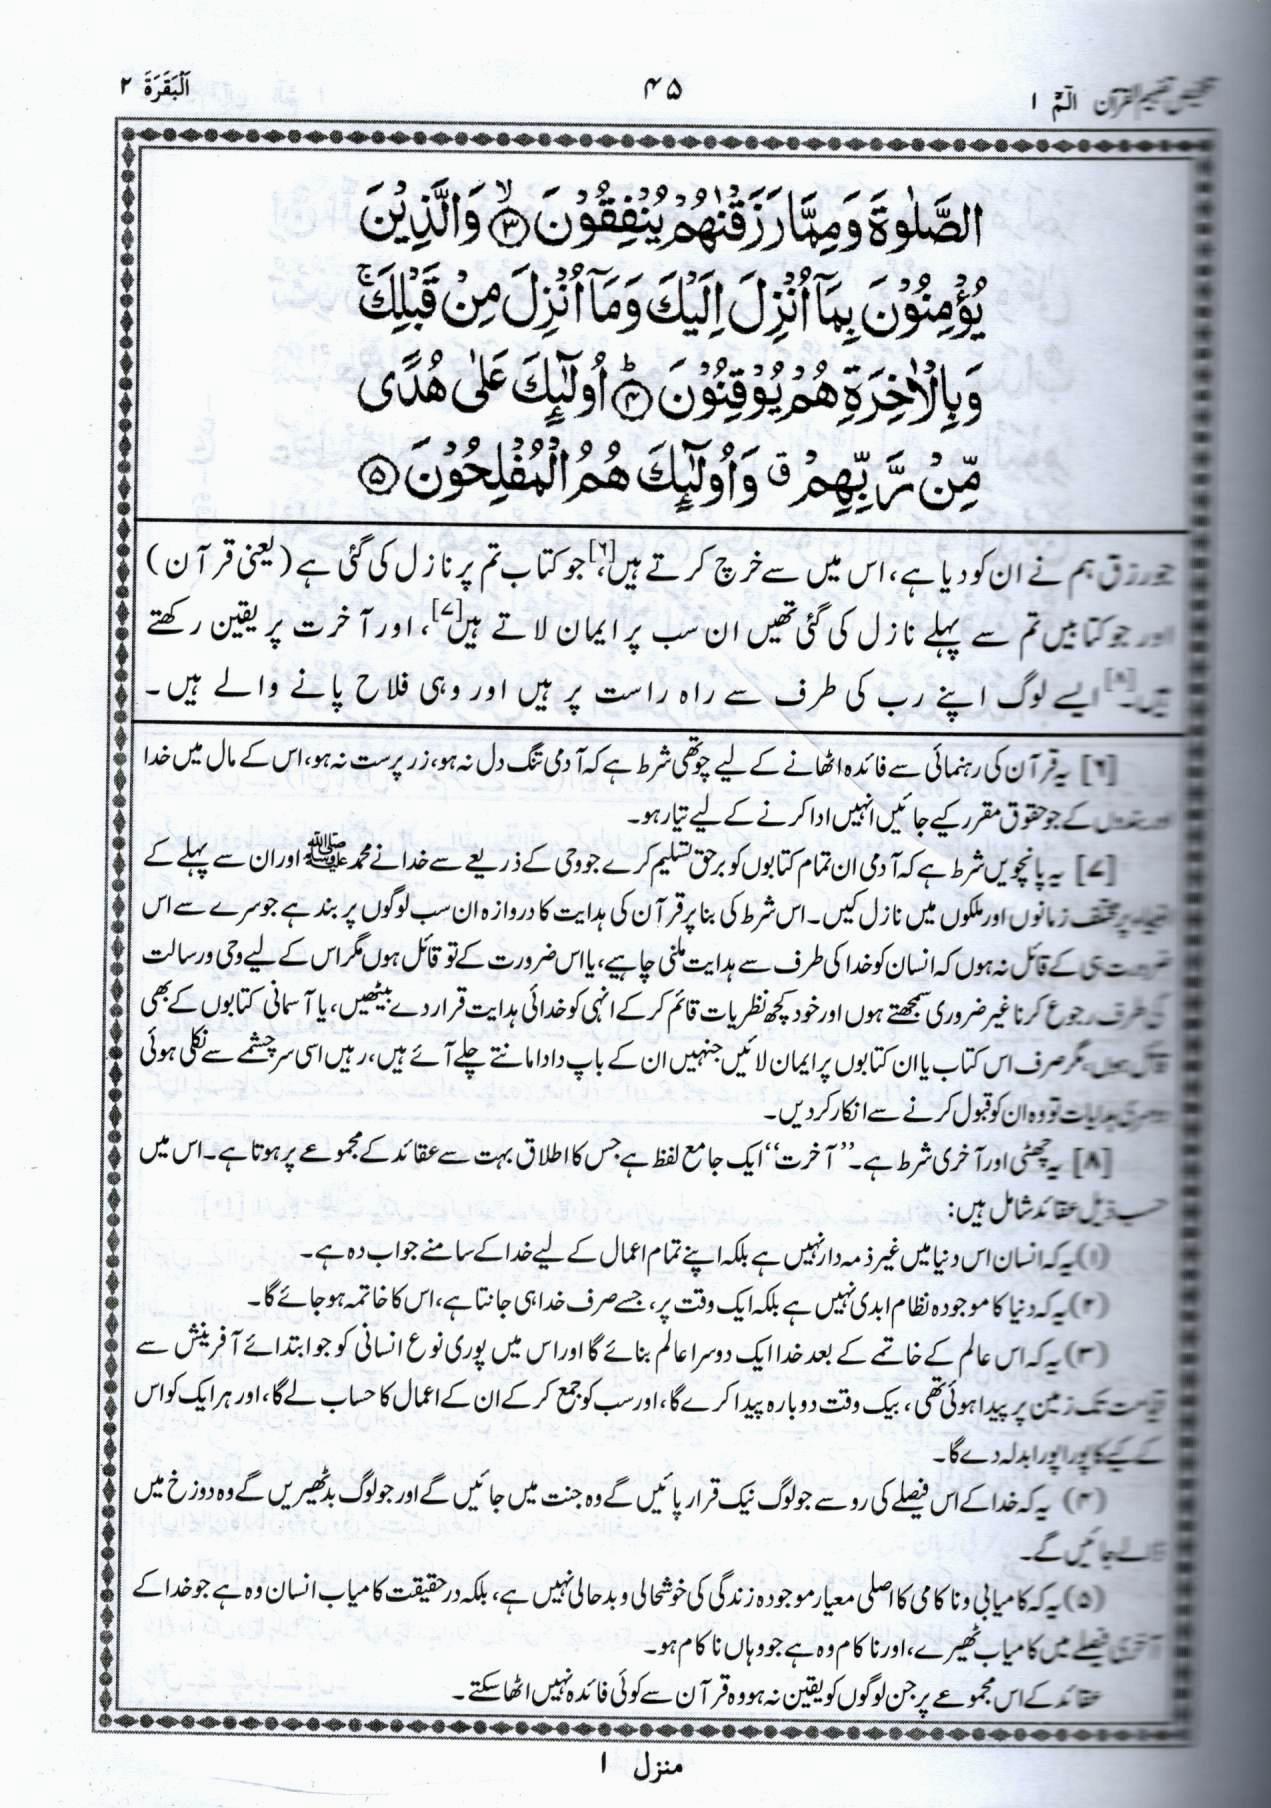 تلخیص تفہیم القرآن الٓمّٓ ۱
۴۵
اَلْبَقَرَة ۲
الصَّلٰوةَ وَمِمَّا رَزَقْنٰهُمْ يُنْفِقُوْنَ ۙ﴿۳﴾ وَالَّذِيْنَ
يُؤْمِنُوْنَ بِمَآ اُنْزِلَ اِلَيْكَ وَمَآ اُنْزِلَ مِنْ قَبْلِكَ ۚ
وَبِالْاٰخِرَةِ هُمْ يُوْقِنُوْنَ ؕ﴿۴﴾ اُولٰٓئِكَ عَلٰى هُدًى
مِّنْ رَّبِّهِمْ ۗ وَاُولٰٓئِكَ هُمُ الْمُفْلِحُوْنَ ﴿۵﴾
جو رزق ہم نے ان کو دیا ہے، اس میں سے خرچ کرتے ہیں[۶]، جو کتاب تم پر نازل کی گئی ہے (یعنی قرآن)
اور جو کتابیں تم سے پہلے نازل کی گئی تھیں ان سب پر ایمان لاتے ہیں[۷]، اور آخرت پر یقین رکھتے
ہیں۔[۸] ایسے لوگ اپنے رب کی طرف سے راہ راست پر ہیں اور وہی فلاح پانے والے ہیں۔
[۶] یہ قرآن کی رہنمائی سے فائدہ اٹھانے کے لیے چوتھی شرط ہے کہ آدمی تنگ دل نہ ہو، زر پرست نہ ہو، اس کے مال میں خدا
اور بندوں کے جو حقوق مقرر کیے جائیں انہیں ادا کرنے کے لیے تیار ہو۔
[۷] یہ پانچویں شرط ہے کہ آدمی ان تمام کتابوں کو برحق تسلیم کرے جو وحی کے ذریعے سے خدا نے محمد ﷺ اور ان سے پہلے کے
انبیاء پر مختلف زمانوں اور ملکوں میں نازل کیں۔ اس شرط کی بنا پر قرآن کی ہدایت کا دروازہ ان سب لوگوں پر بند ہے جو سرے سے اس
ضرورت ہی کے قائل نہ ہوں کہ انسان کو خدا کی طرف سے ہدایت ملنی چاہیے، یا اس ضرورت کے تو قائل ہوں مگر اس کے لیے وحی و رسالت
کی طرف رجوع کرنا غیر ضروری سمجھتے ہوں اور خود کچھ نظریات قائم کر کے انہی کو خدائی ہدایت قرار دے بیٹھیں، یا آسمانی کتابوں کے بھی
قائل ہوں، مگر صرف اس کتاب یا ان کتابوں پر ایمان لائیں جنہیں ان کے باپ دادا مانتے چلے آئے ہیں، رہیں اسی سرچشمے سے نکلی ہوئی
دوسری ہدایات تو وہ ان کو قبول کرنے سے انکار کر دیں۔
[۸] یہ چھٹی اور آخری شرط ہے۔ ’’آخرت‘‘ ایک جامع لفظ ہے جس کا اطلاق بہت سے عقائد کے مجموعے پر ہوتا ہے۔ اس میں
حسب ذیل عقائد شامل ہیں:
(۱) یہ کہ انسان اس دنیا میں غیر ذمہ دار نہیں ہے بلکہ اپنے تمام اعمال کے لیے خدا کے سامنے جواب دہ ہے۔
(۲) یہ کہ دنیا کا موجودہ نظام ابدی نہیں ہے بلکہ ایک وقت پر، جسے صرف خدا ہی جانتا ہے، اس کا خاتمہ ہو جائے گا۔
(۳) یہ کہ اس عالم کے خاتمے کے بعد خدا ایک دوسرا عالم بنائے گا اور اس میں پوری نوع انسانی کو جو ابتدائے آفرینش سے
قیامت تک زمین پر پیدا ہوئی تھی، بیک وقت دوبارہ پیدا کرے گا، اور سب کو جمع کر کے ان کے اعمال کا حساب لے گا، اور ہر ایک کو اس
کے کیے کا پورا پورا بدلہ دے گا۔
(۴) یہ کہ خدا کے اس فیصلے کی رو سے جو لوگ نیک قرار پائیں گے وہ جنت میں جائیں گے اور جو لوگ بد ٹھیریں گے وہ دوزخ میں
ڈالے جائیں گے۔
(۵) یہ کہ کامیابی و ناکامی کا اصلی معیار موجودہ زندگی کی خوشحالی و بدحالی نہیں ہے، بلکہ درحقیقت کامیاب انسان وہ ہے جو خدا کے
آخری فیصلے میں کامیاب ٹھیرے، اور ناکام وہ ہے جو وہاں ناکام ہو۔
عقائد کے اس مجموعے پر جن لوگوں کو یقین نہ ہو وہ قرآن سے کوئی فائدہ نہیں اٹھا سکتے۔
منزل ۱